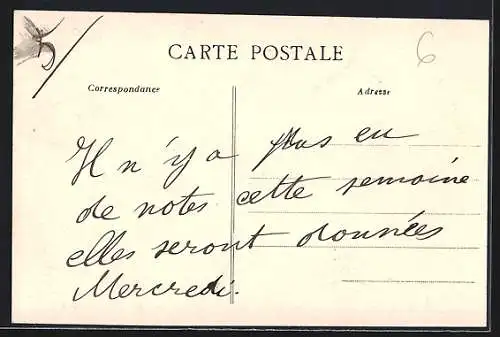 6
CARTE POSTALE
Correspondance
Adresse
Il n'y a pas eu
de notes cette semaine
elles seront données
Mercredi.